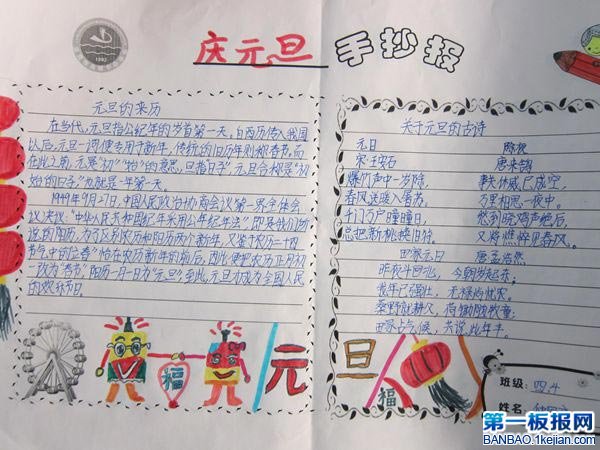 庆元旦 手抄报
1992
元旦的来历
在当代,元旦指公纪年的岁首第一天。自西历传入我国
以后,元旦一词便专用于新年,传统的旧历年则称春节。而
在此之前,元是"初""始"的意思,旦指"日子",元旦合称是"初
始的日子",也就是一年第一天。
1949年9月27日中国人民政治协商会议第一界全体会
议决议:"中华人民共和国纪年采用公年纪年法",即是我们所
说的阳历,为了区别农历和阳历两个新年,又鉴于农历二十四
节气中的"立春"恰在农历新年的前后,因此便把农历正月初
一改为"春节",阳历一月一日为"元旦",至此,元旦才成为全国人民
的欢乐节日。
福
元
关于元旦的古诗
元日 除夜
宋·王安石 唐·来鹄
爆竹声中一岁除, 事关休戚已成空,
春风送暖入屠苏。 万里相思一夜中。
千门万户曈曈日, 愁到晓鸡声绝后,
总把新桃换旧符。 又将憔悴见春风。
田家元日 唐·孟浩然
昨夜斗回北, 今朝岁起东;
我年已强壮, 无禄尚忧农。
桑野就耕父, 荷锄随牧童;
田家占气候, 共说此年丰。
旦
福
班级:四.4
姓名
第一板报网
BANBAO.1kejian.com